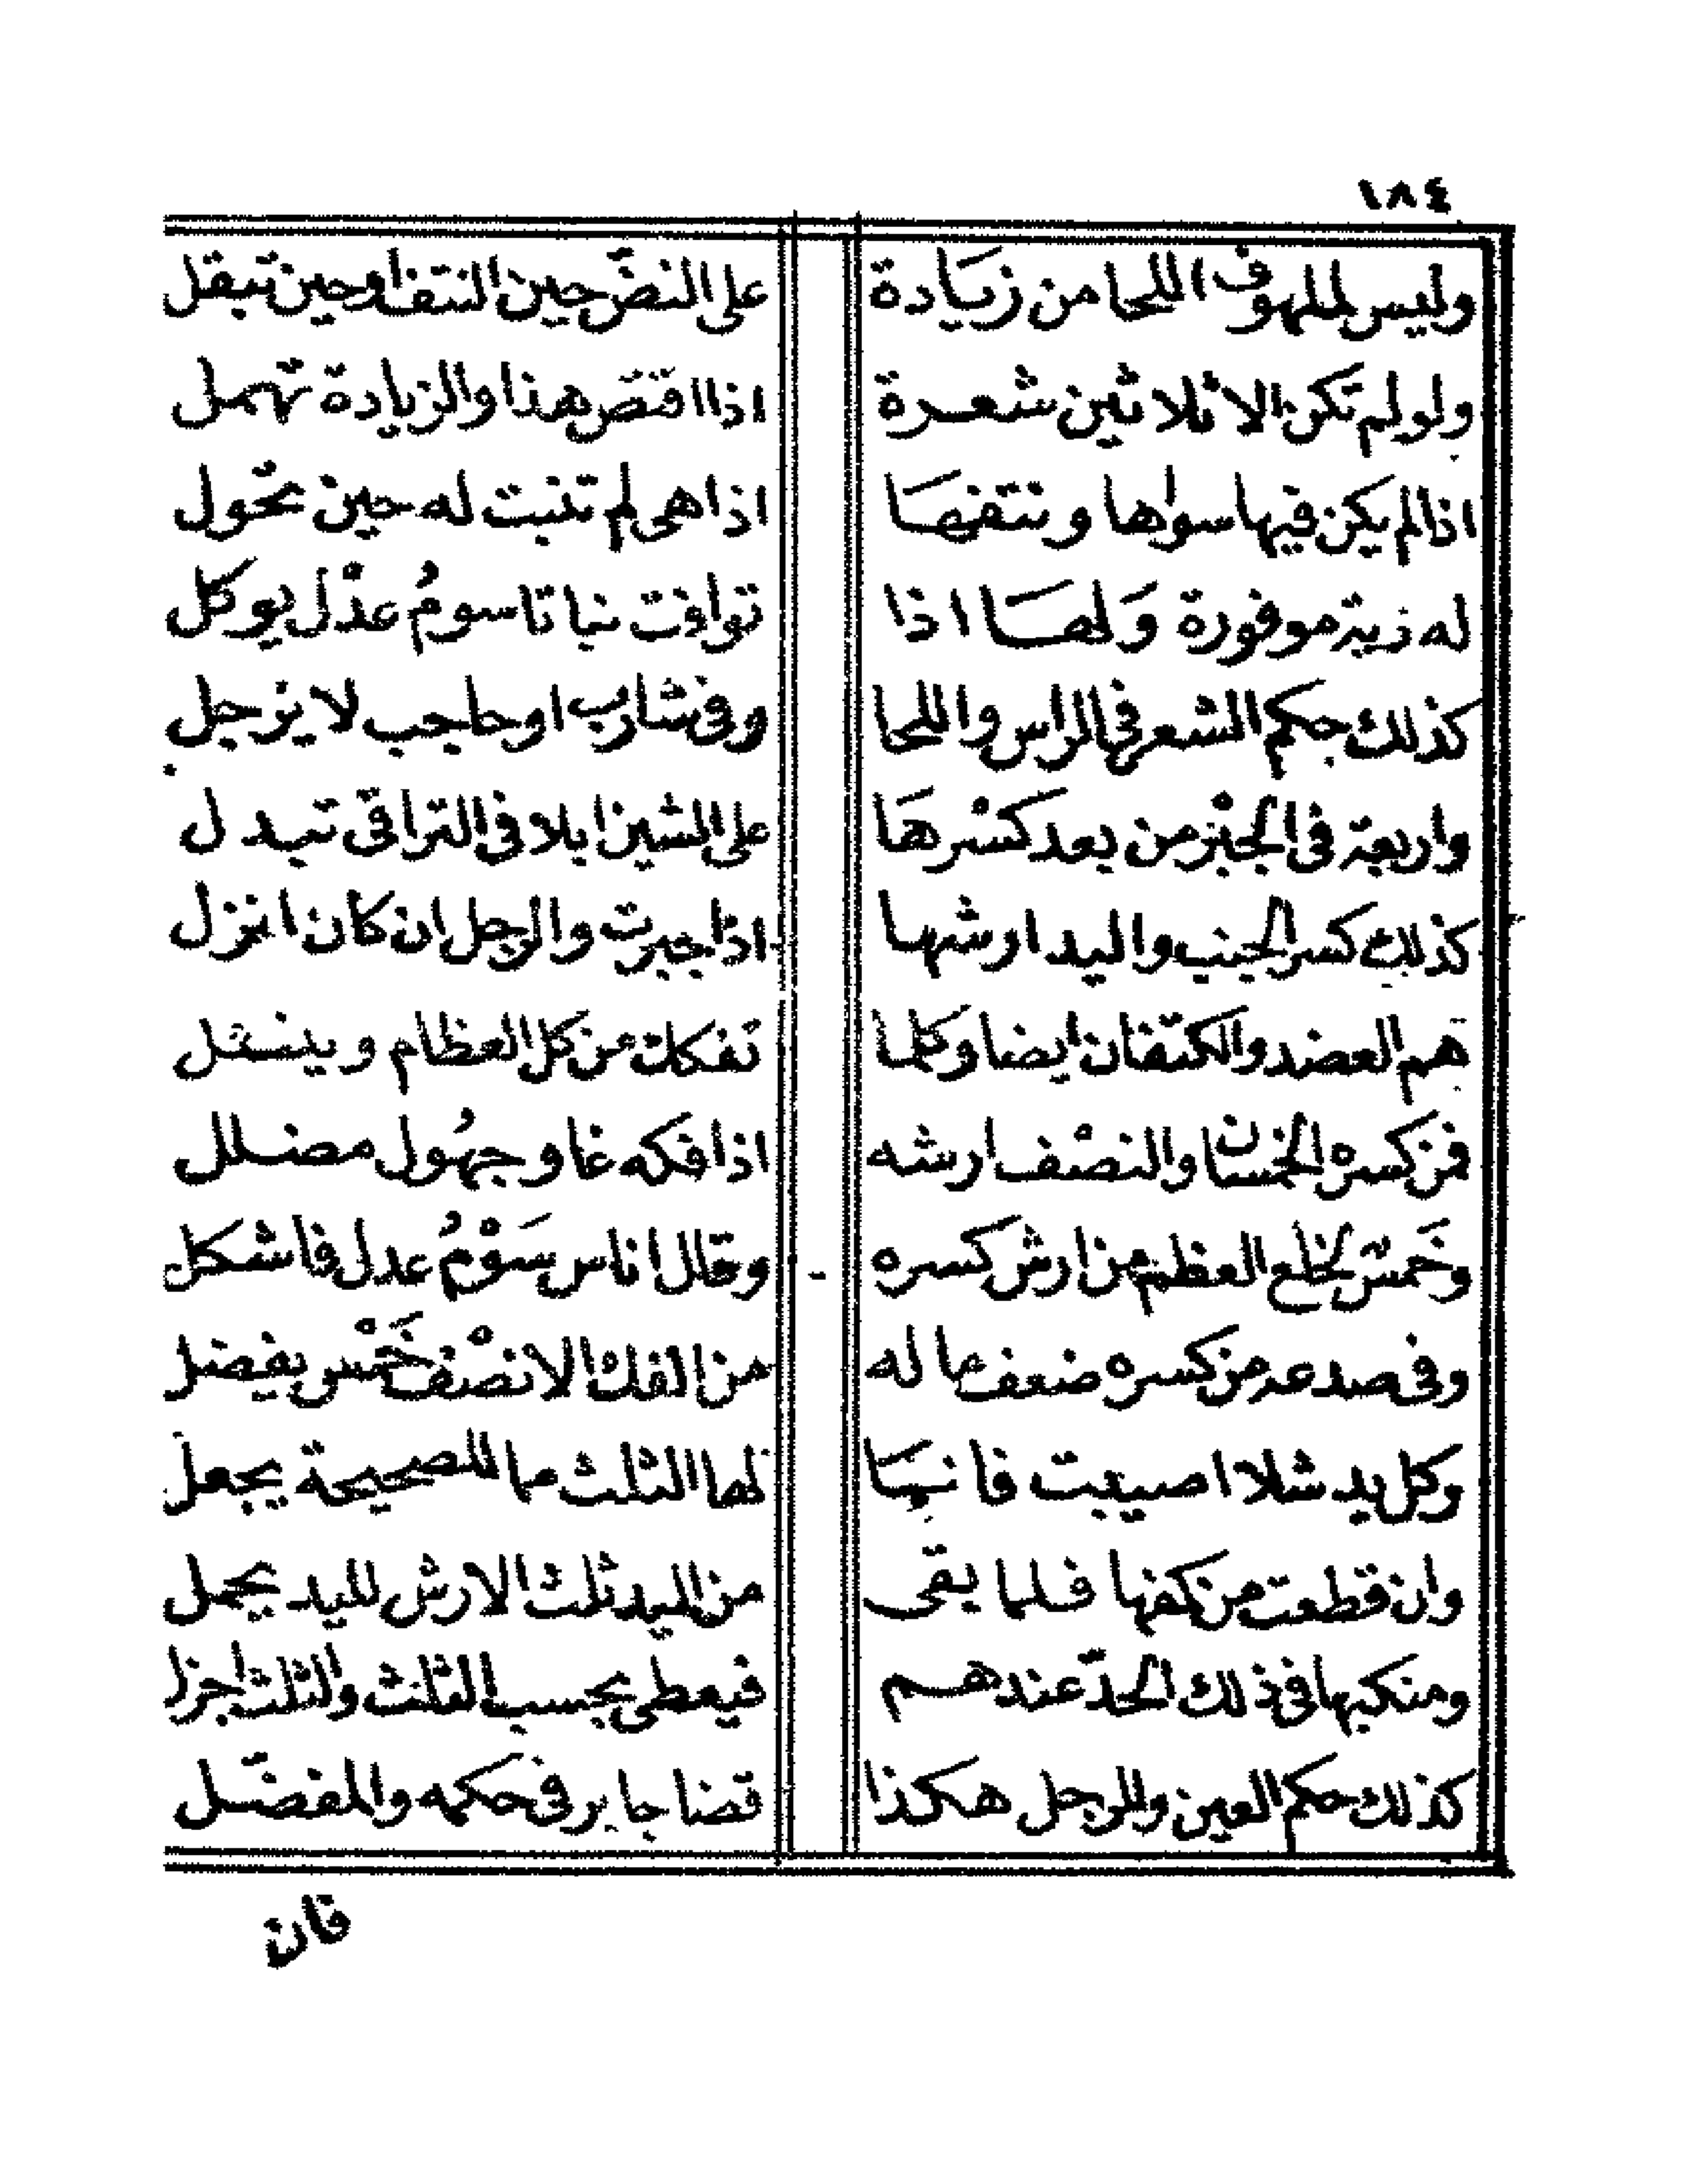 ١٨٤
وليس لملهوف اللحا من زيادة على النضّ حين النتف او حين تبقل
ولو لم تكن الا ثلاثين شعرة اذا اقتص هذا والزيادة تهمل
اذا لم يكن فيها سواها ونتفها اذا هى لم تنبت له حين تحول
له زينة موفورة ولها اذا توافت نباتا سومُ عدْل يوكل
كذلك حكم الشعر فى الراس واللحا وفى شارب او حاجب لا يزجل
واربعة فى الجبْر من بعد كسْرها على الشين ابلا فى التراقى تبدل
كذلك كسر الجنب واليد ارشها اذا جبرت والرجل ان كان انزل
هم العضد والكتفان ايضا وكلما تفكك عن كل العظام وينسل
فمن كسره الخمسان والنصْف ارشه اذا فكه غاو جهُول مضلل
وخمس لخلع العظم من ارش كسره وقال اناس سَوْمُ عدل فاشكل
وفى صدعه من كسره ضعف ما له من الفك الا نصْف خَمْس يفضل
وكل يد شلا اصيبت فانها لها الثلث مما للصحيحة يجعل
وان قطعت من كفها فلما يقى من اليد ثلث الارش لليد يحمل
ومنكبها فى ذلك الحدّ عندهم فيعطى بحسب الثلث والثلث اجزل
كذلك حكم العين والرجل هكذا قضا جابر فى حكمه والمفضّل
فان